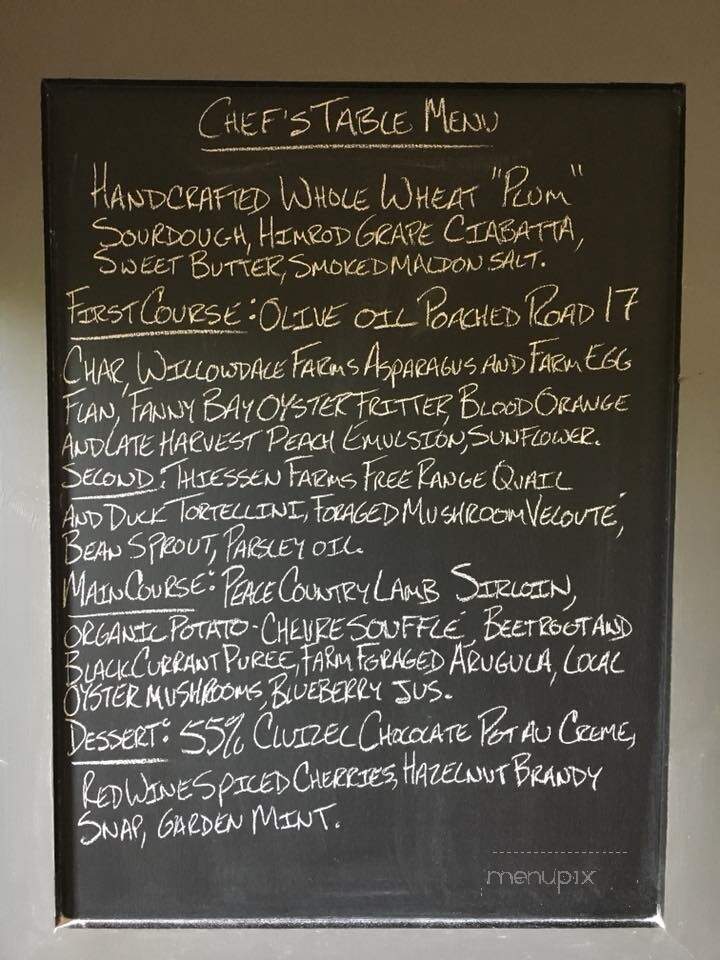 CHEF'S TABLE MENU
HANDCRAFTED WHOLE WHEAT "PLUM"
SOURDOUGH, HIMROD GRAPE CIABATTA,
SWEET BUTTER, SMOKED MALDON SALT.
FIRST COURSE: OLIVE OIL POACHED ROAD 17
CHAR, WILLOWDALE FARMS ASPARAGUS AND FARM EGG
FLAN, FANNY BAY OYSTER FRITTER, BLOOD ORANGE
AND LATE HARVEST PEACH EMULSION, SUNFLOWER.
SECOND: THIESSEN FARMS FREE RANGE QUAIL
AND DUCK TORTELLINI, FORAGED MUSHROOM VELOUTÉ,
BEAN SPROUT, PARSLEY OIL.
MAIN COURSE: PEACE COUNTRY LAMB SIRLOIN,
ORGANIC POTATO-CHEVRE SOUFFLÉ, BEETROOT AND
BLACK CURRANT PUREE, FARM FORAGED ARUGULA, LOCAL
OYSTER MUSHROOMS, BLUEBERRY JUS.
DESSERT: 55% CLUIZEL CHOCOLATE POT AU CREME,
RED WINE SPICED CHERRIES, HAZELNUT BRANDY
SNAP, GARDEN MINT.
menupix